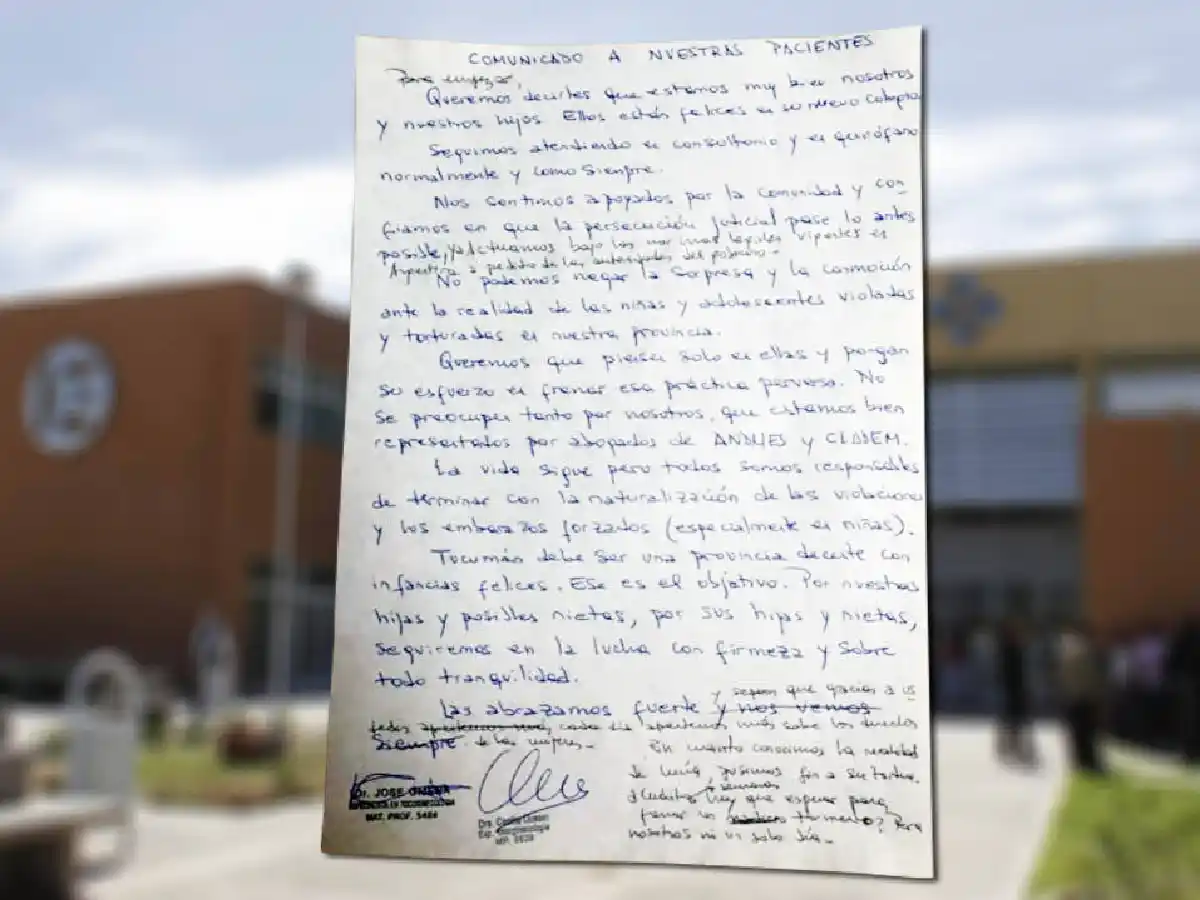 COMUNICADO A NUESTRAS PACIENTES
Para empezar,
Queremos decirles que estamos muy bien nosotros
y nuestros hijos. Ellos están felices en su nuevo colegio
Seguimos atendiendo en consultorio y en quirófano
normalmente y como siempre.
Nos sentimos apoyados por la comunidad y con
fiamos en que la persecución judicial pase lo antes
posible, ya actuamos bajo las normas legales vigentes en
Argentina a pedido de las autoridades del
No podemos negar la sorpresa y la conmoción
ante la realidad de las niñas y adolescentes violadas
y torturadas en nuestra provincia.
Queremos que piensen solo en ellas y pongan
su esfuerzo en frenar esa práctica perversa. No
se preocupen tanto por nosotros, que estamos bien
representados por abogados de ANDHES y CLADEM.
La vida sigue pero todos somos responsables
de terminar con la naturalización de las violaciones
y los embarazos forzados (especialmente en niñas).
Tucumán debe ser una provincia decente con
infancias felices. Ese es el objetivo. Por nuestras
hijas y posibles nietas, por sus hijas y nietas,
seguiremos en la lucha con firmeza y sobre
todo tranquilidad.
y sepan que gracias a us
Las abrazamos fuerte y nos vemos
tedes apostamos más sobre los derechos
siempre de las mujeres.
En cuanto conocimos la realidad
de Lucía, pusimos fin a su tortura.
semanas
¿Cuántas hay que esperar para
frenar un tormento? Para
nosotros ni un solo día.
Dr. JOSE
MAT. PROF. 5484
Dra.